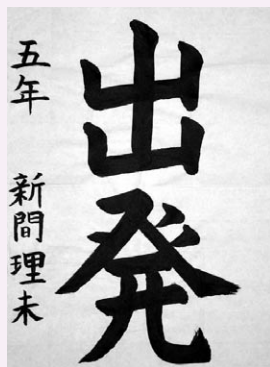 出発
五年 新間理未